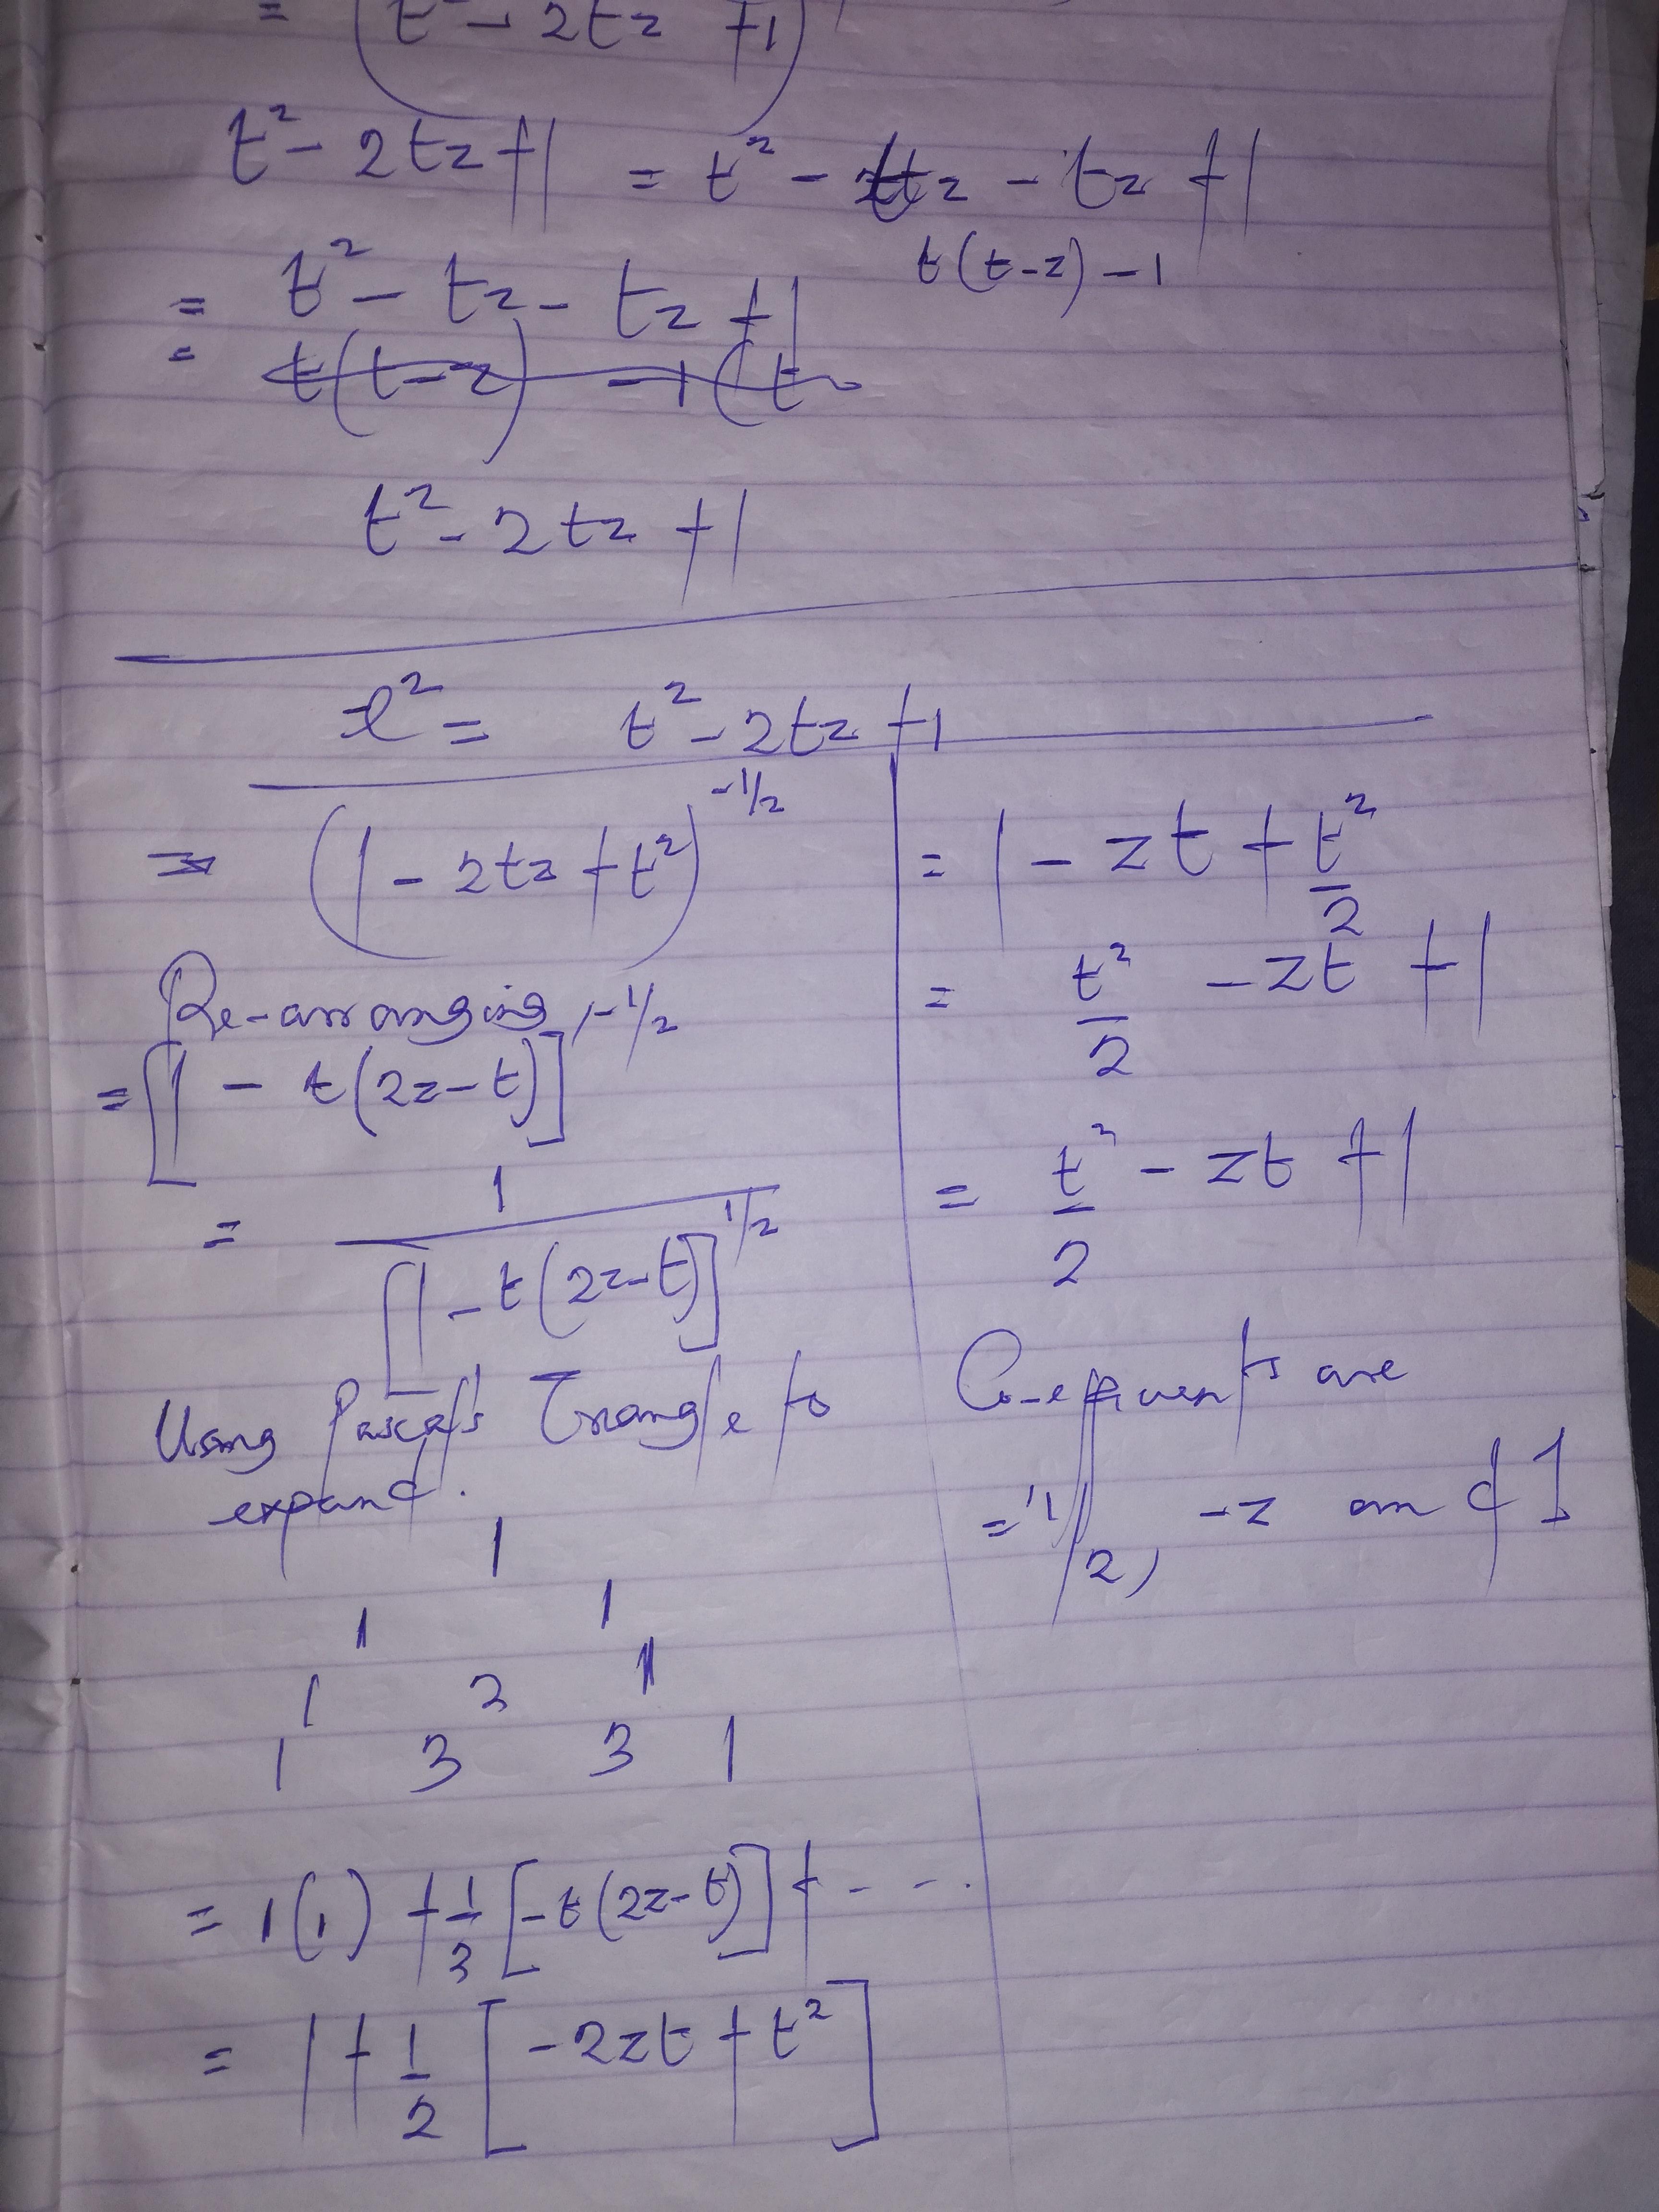 = (t² - 2tz +1)
t² - 2tz +1 = t² - tz - tz +1
t(t-z) -1
= t² - tz - tz +1
= t(t-z) -1(t
t² - 2tz +1
x² = t² - 2tz +1
⇒ (1 - 2tz + t²)^-1/2
Re-arranging
= [1 - t(2z-t)]^-1/2
= 1/[1 - t(2z-t)]^1/2
Using Pascal's Triangle to
expand.
1
1 1
1 2 1
1 3 3 1
= 1(1) + 1/3 [-t(2z-t)] + - - .
= 1 + 1/2 [-2zt + t²]
= 1 - zt + t²/2
= t²/2 - zt +1
= t²/2 - zt +1
Co-efficients are
= 1/2, -z and 1